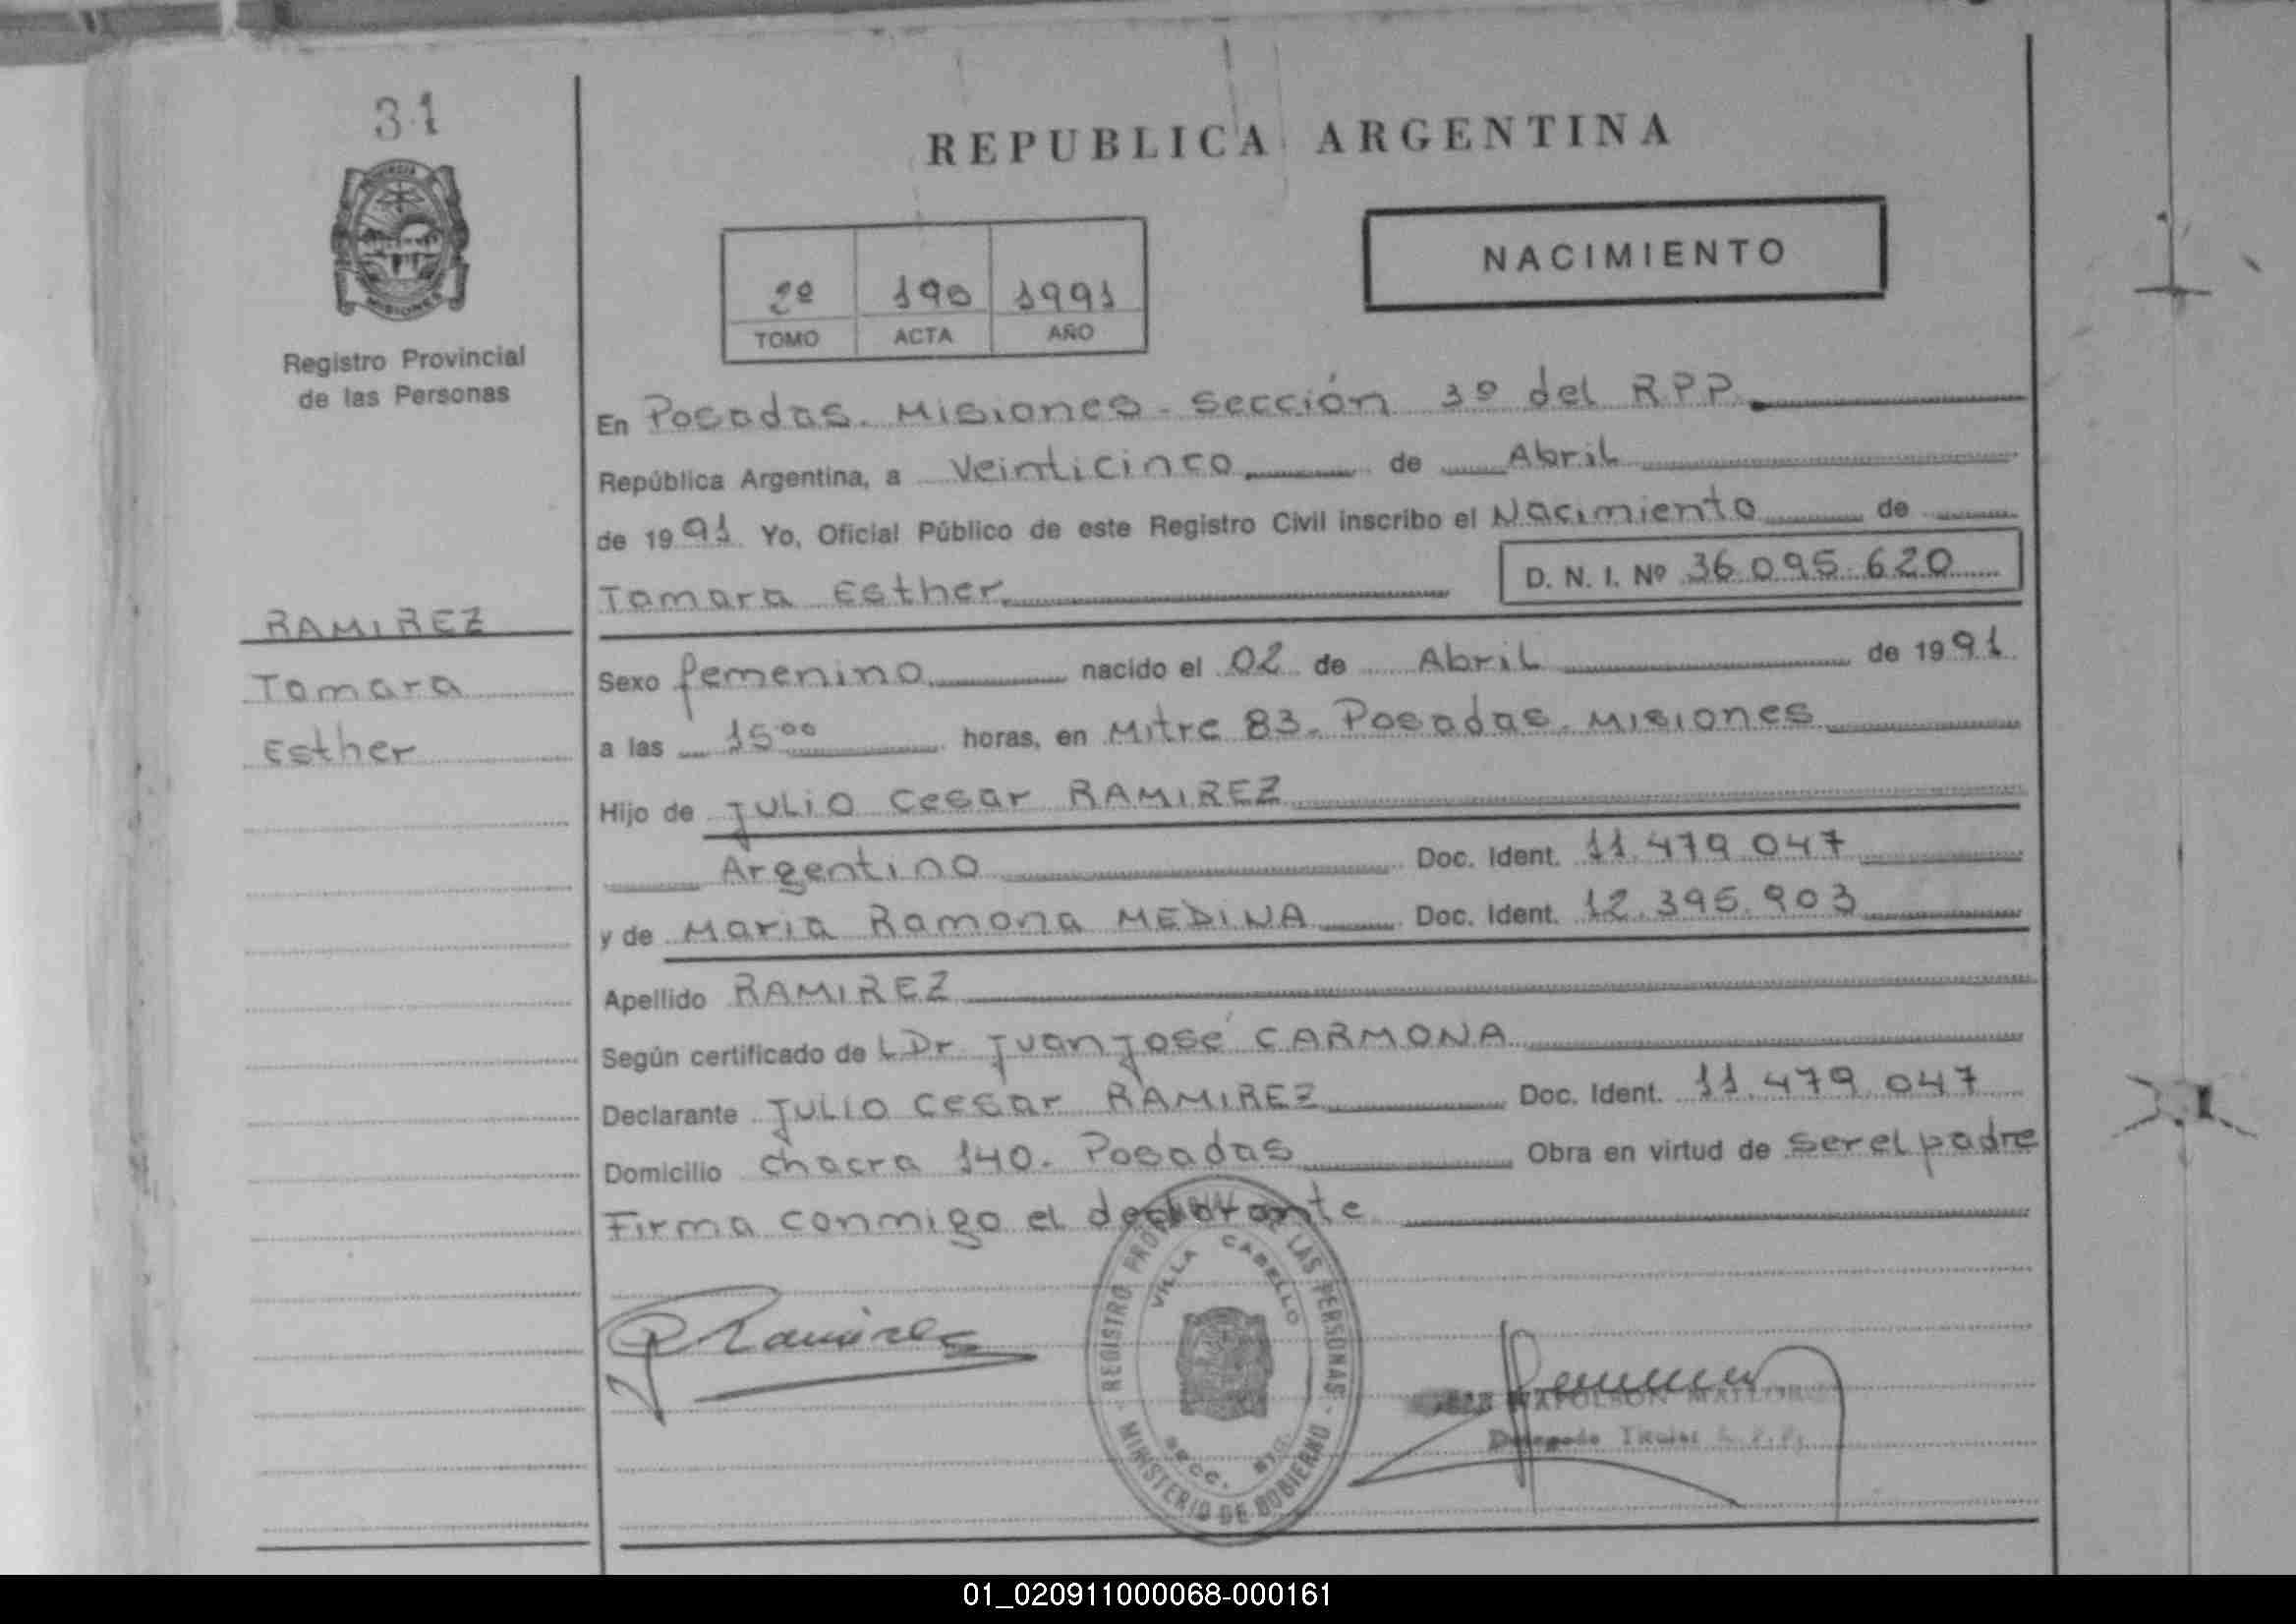 31
Registro Provincial
de las Personas
RAMIREZ
Tamara
Esther
REPUBLICA ARGENTINA
NACIMIENTO
2º 190 1991
TOMO ACTA AÑO
En Posadas. Misiones - Sección 3º del RPP.
República Argentina, a Veinticinco de Abril
de 1991 Yo, Oficial Público de este Registro Civil inscribo el Nacimiento de
Tamara Esther D. N. I. Nº 36.095.620
Sexo femenino nacido el 02 de Abril de 1991
a las 15⁰⁰ horas, en Mitre 83. Posadas. Misiones
Hijo de Julio Cesar RAMIREZ
Argentino Doc. Ident. 11.479.047
y de Maria Ramona MEDINA Doc. Ident. 12.395.903
Apellido RAMIREZ
Según certificado de L Dr Juan José CARMONA
Declarante Julio Cesar RAMIREZ Doc. Ident. 11.479.047
Domicilio chacra 140. Posadas Obra en virtud de ser el padre
Firma conmigo el declarante
Ramirez
REGISTRO PROVINCIAL DE LAS PERSONAS
VILLA CABELLO
SECC.
MINISTERIO DE GOBIERNO
NAPOLEON
Delegado Titular R. P. P.
01_020911000068-000161